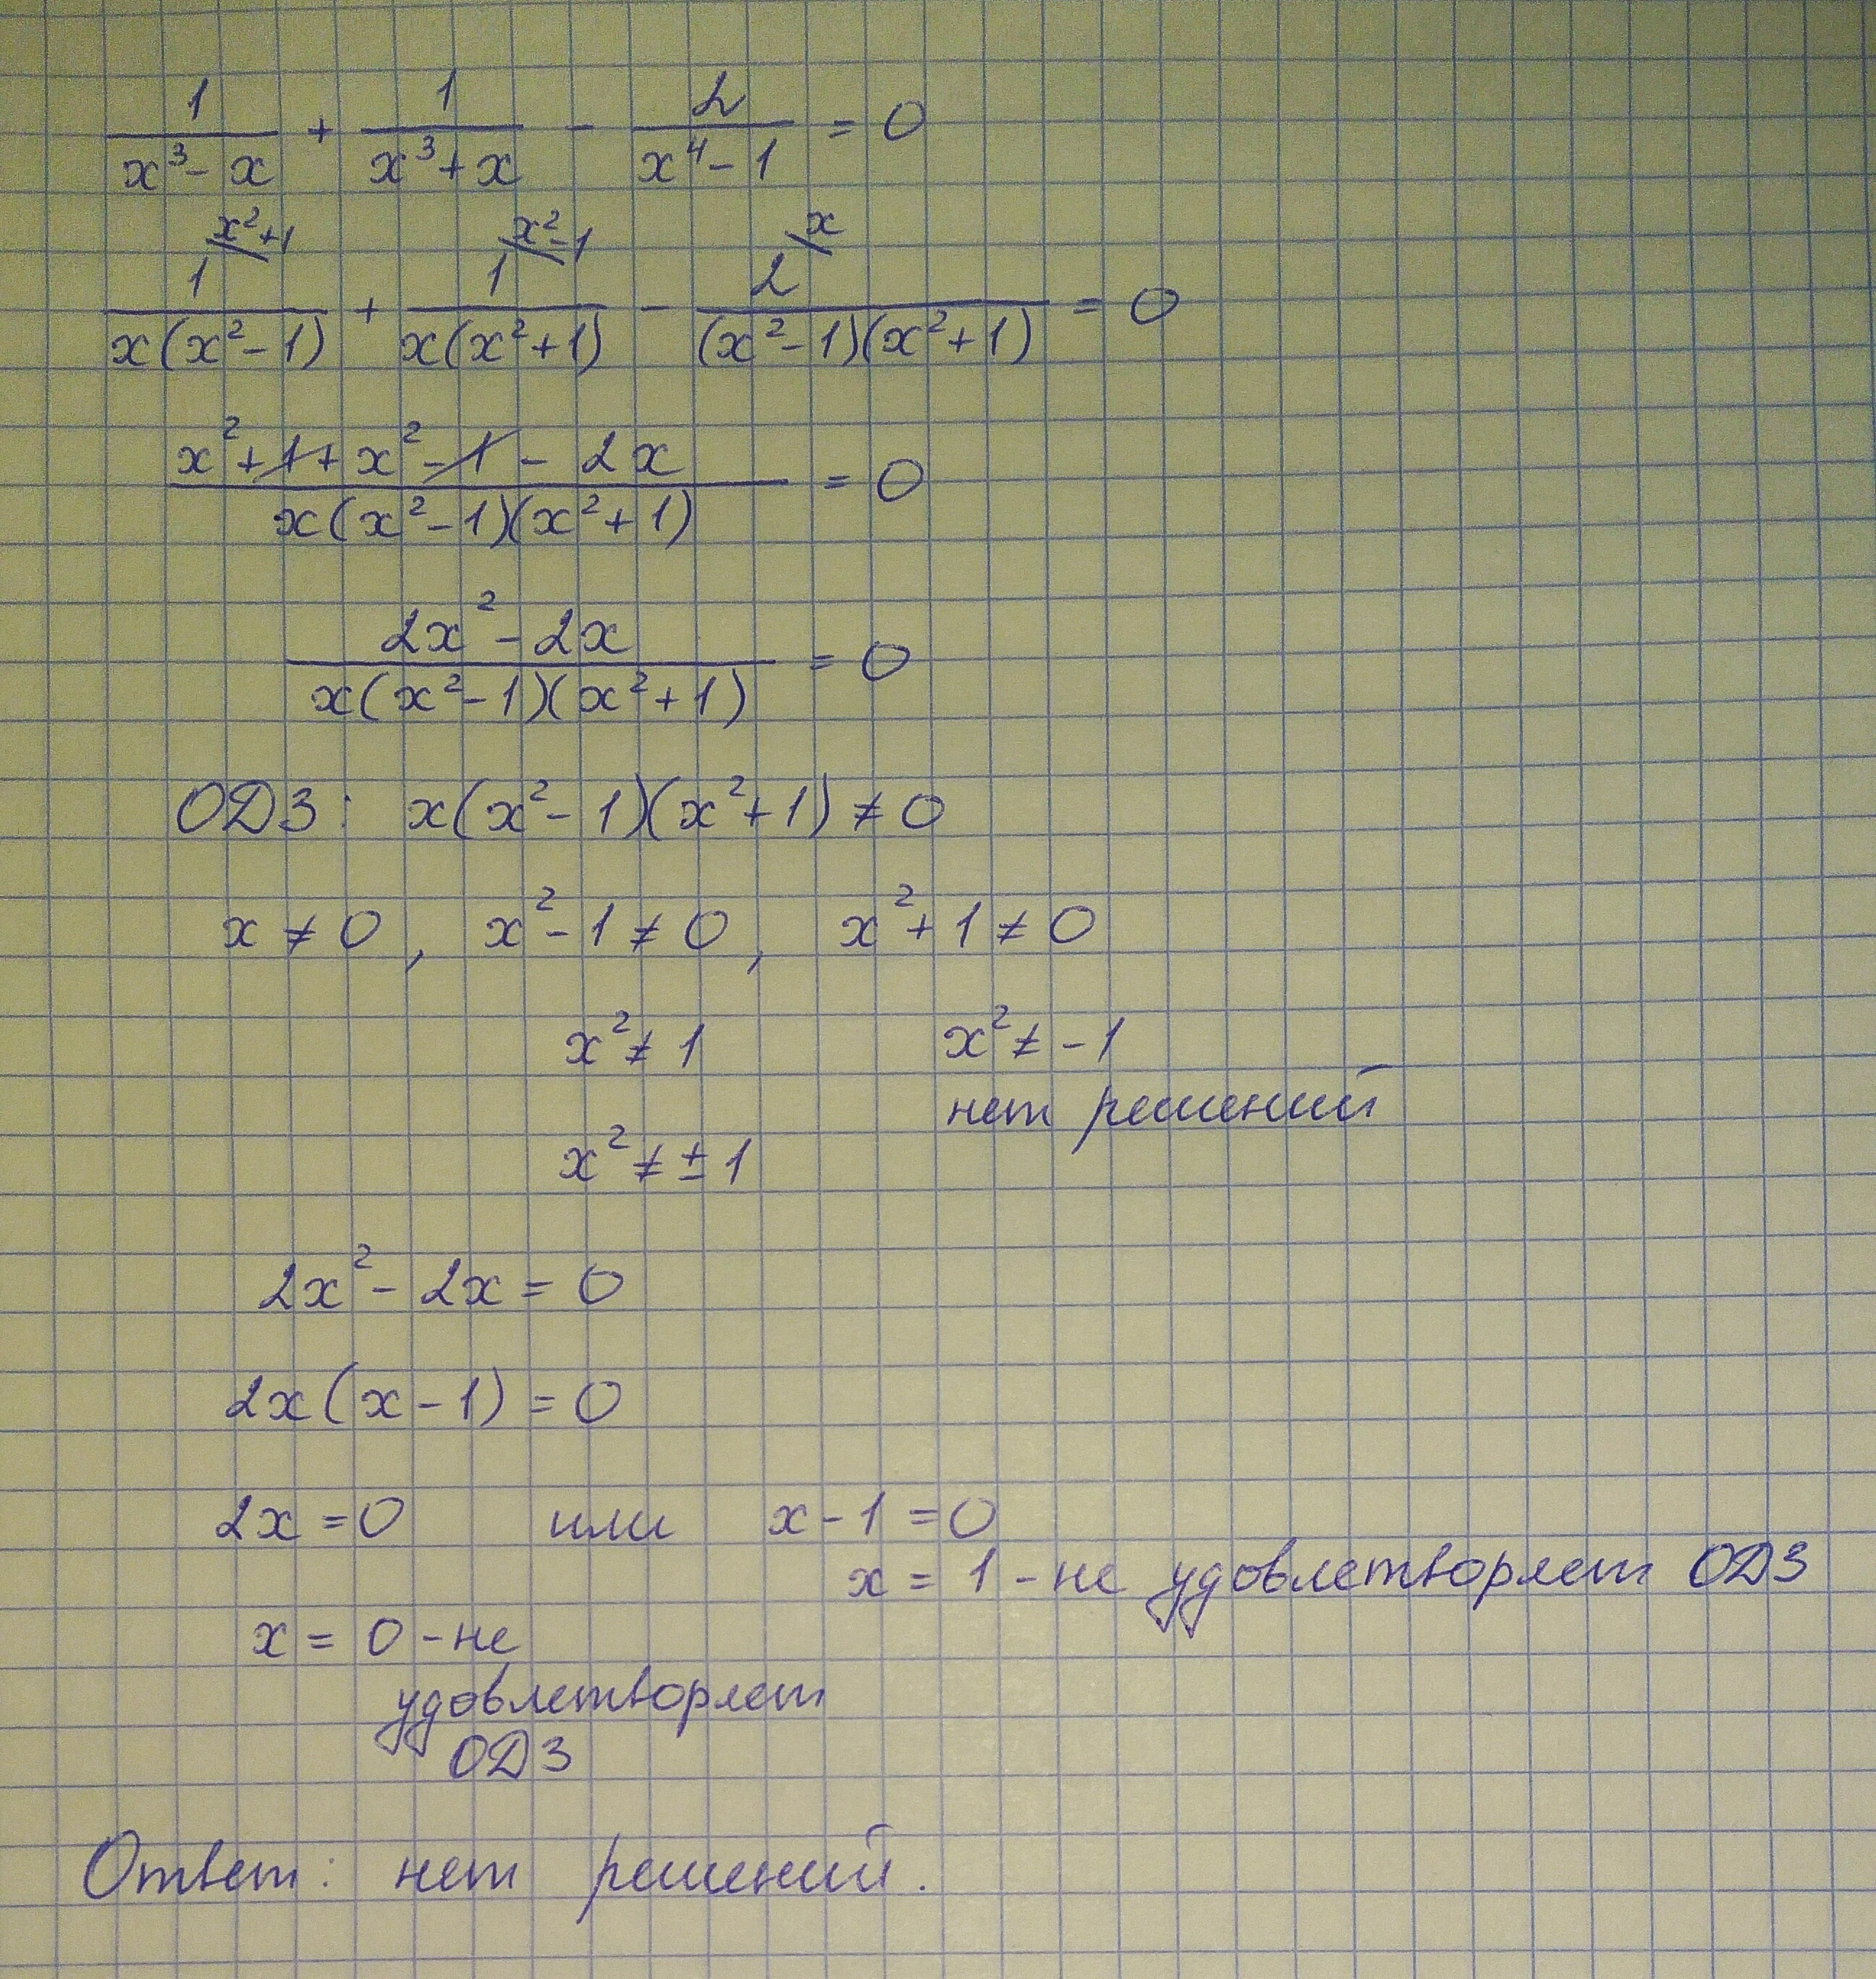 1/(x³ - x) + 1/(x³ + x) - 2/(x⁴ - 1) = 0
x²+1 x²-1 x
1/(x(x² - 1)) + 1/(x(x² + 1)) - 2/((x² - 1)(x² + 1)) = 0
(x² + 1 + x² - 1 - 2x)/(x(x² - 1)(x² + 1)) = 0
(2x² - 2x)/(x(x² - 1)(x² + 1)) = 0
ОДЗ: x(x² - 1)(x² + 1) ≠ 0
x ≠ 0, x² - 1 ≠ 0, x² + 1 ≠ 0
x² ≠ 1 x² ≠ -1
нет решений
x² ≠ ± 1
2x² - 2x = 0
2x(x - 1) = 0
2x = 0 или x - 1 = 0
x = 1 - не удовлетворяет ОДЗ
x = 0 - не
удовлетворяет
ОДЗ
Ответ: нет решений.